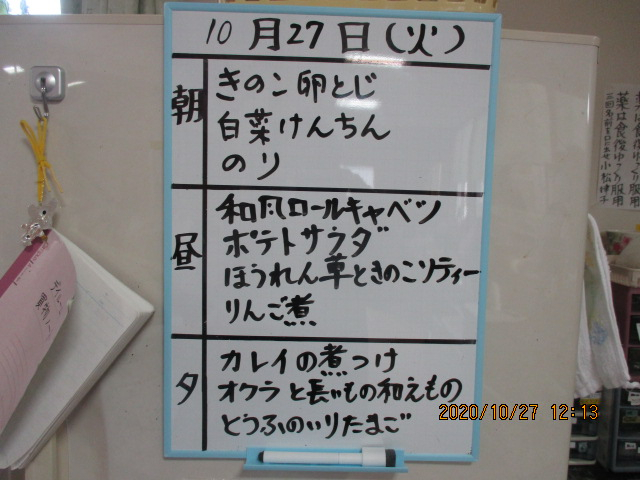 10月27日(火)
朝
きのこ卵とじ
白菜けんちん
のり
昼
和風ロールキャベツ
ポテトサラダ
ほうれん草ときのこソティー
りんご煮
夕
カレイの煮つけ
オクラと長いもの和えもの
とうふのいりたまご
2020/10/27 12:13
薬は食後ゆっくり服用